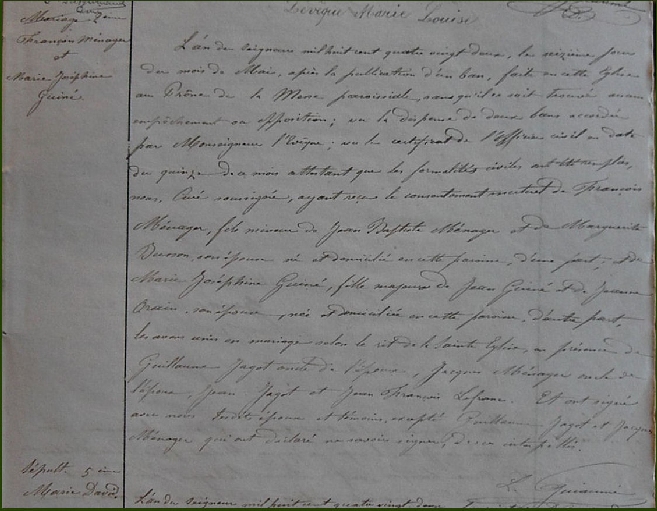 Levêque Marie Louise
Mariage 2ème
François Ménager
et
Marie Joséphine
Guiné
L'an du Seigneur mil huit cent quatre vingt deux, le seizième jour
du mois de Mai, après la publication d'un ban, faite en cette Eglise
au Prône de la Messe paroissiale, sans qu'il se soit trouvé aucun
empêchement ou opposition; vu la dispense de deux bans accordée
par Monseigneur l'Evêque; vu le certificat de l'Officier civil en date
du quinze de ce mois attestant que les formalités civiles ont été remplies,
nous, Curé soussigné, ayant reçu le consentement mutuel de François
Ménager, fils mineur de Jean Baptiste Ménager et de Marguerite
son épouse né et domicilié en cette paroisse, d'une part; et de
Marie Joséphine Guiné, fille majeure de Jean Guiné et de Jeanne
son épouse, née et domiciliée en cette paroisse, d'autre part,
les avons unis en mariage selon le rit de la Sainte Eglise, en présence de
Guillaume Jagot oncle de l'époux, Jacques Ménager oncle de
l'époux, Jean Jagot et Jean François Et ont signé
avec nous lesdits époux et témoins, excepté Guillaume Jagot et Jacques
Ménager qui ont déclaré ne savoir signer, de ce interpellés.
Sépult. 5ème
Marie David
L'an du Seigneur mil huit cent quatre vingt deux